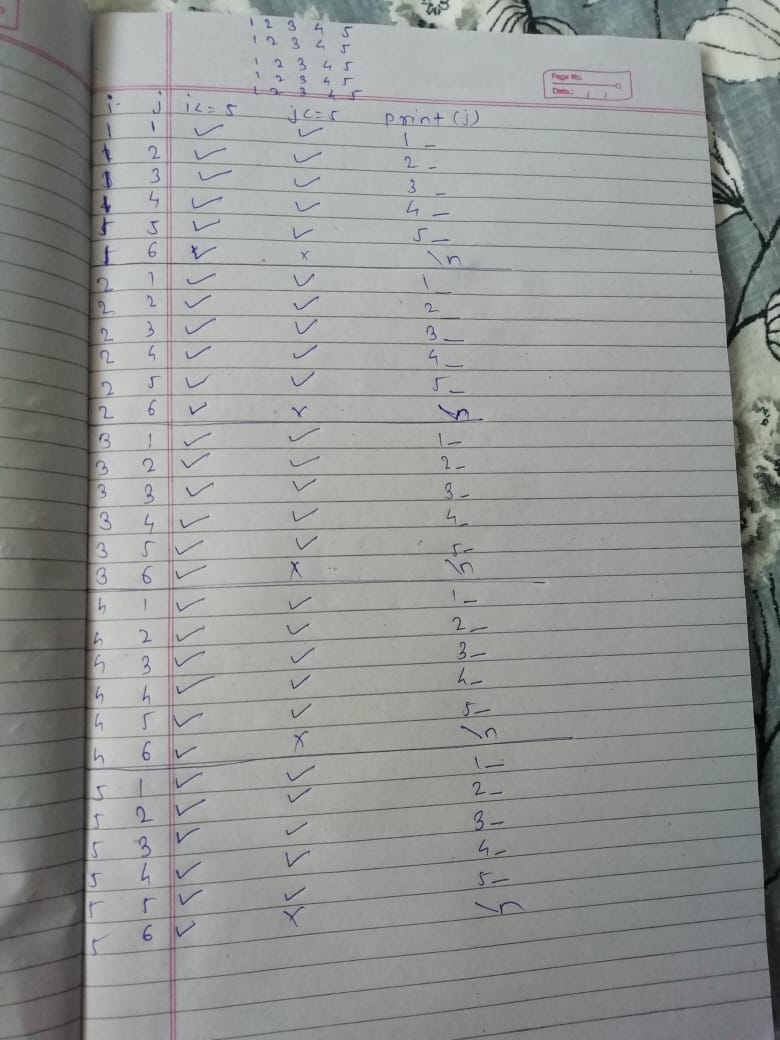 1 2 3 4 5
1 2 3 4 5
1 2 3 4 5
1 2 3 4 5
1 2 3 4 5
Page No.
Date.: / /
i j i<=5 j<=5 print(j)
1 1 ✓ ✓ 1_
1 2 ✓ ✓ 2_
1 3 ✓ ✓ 3_
1 4 ✓ ✓ 4_
5 ✓ ✓ 5_
1 6 ✓ × \n
2 1 ✓ ✓ 1_
2 2 ✓ ✓ 2_
2 3 ✓ ✓ 3_
2 4 ✓ ✓ 4_
2 5 ✓ ✓ 5_
2 6 ✓ × \n
3 1 ✓ ✓ 1_
3 2 ✓ ✓ 2_
3 3 ✓ ✓ 3_
3 4 ✓ ✓ 4_
3 5 ✓ ✓ 5_
3 6 ✓ × \n
4 1 ✓ ✓ 1_
4 2 ✓ ✓ 2_
4 3 ✓ ✓ 3_
4 4 ✓ ✓ 4_
4 5 ✓ ✓ 5_
4 6 ✓ × \n
5 1 ✓ ✓ 1_
5 2 ✓ ✓ 2_
5 3 ✓ ✓ 3_
5 4 ✓ ✓ 4_
5 5 ✓ ✓ 5_
5 6 ✓ × \n